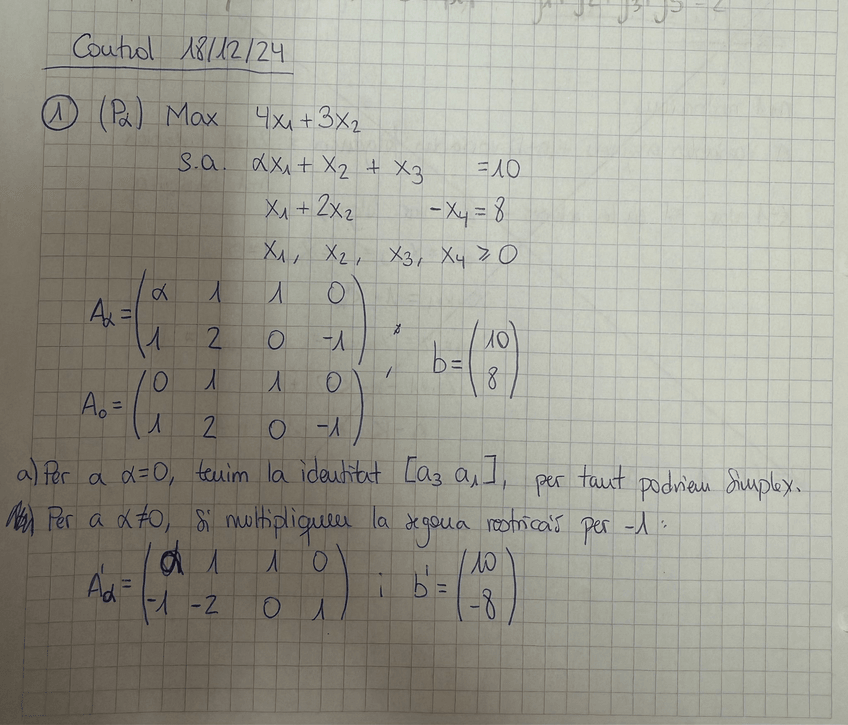 Control 18/12/24
① (Pα) Max 4x₁ + 3x₂
s.a. αx₁ + x₂ + x₃ = 10
x₁ + 2x₂ - x₄ = 8
x₁, x₂, x₃, x₄ ⩾ 0
Aα = ( α 1 1 0
1 2 0 -1 ) ; b = ( 10
8 )
A₀ = ( 0 1 1 0
1 2 0 -1 )
a) Per a α=0, tenim la identitat [a₃ a₁], per tant podriem Simplex.
Per a α≠0, si multipliquem la segona restricció per -1 :
A'α = ( α 1 1 0
-1 -2 0 1 ) i b' = ( 10
-8 )